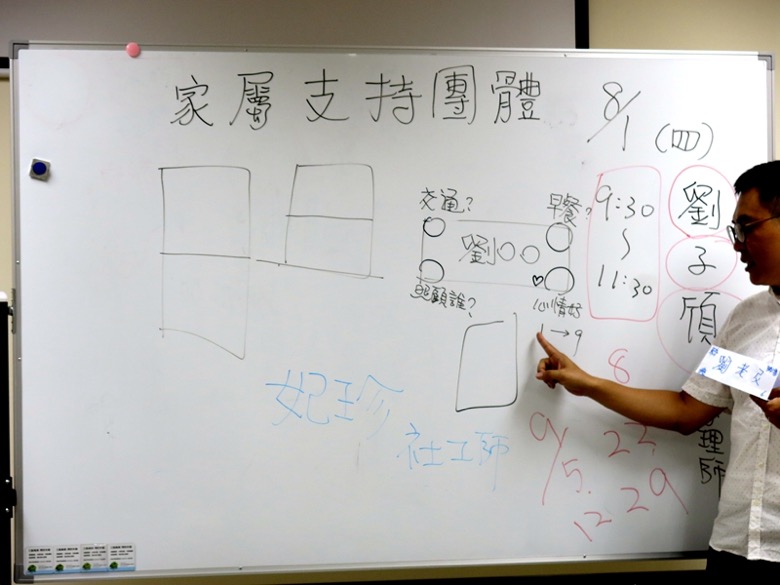 家屬支持團體
8/1 (四)
9:30
~
11:30
劉
子
頎
理師
交通?
早餐?
劉○○
照顧誰?
心情好
1→9
妃珍
社工師
8
22.
29
9/5.
12